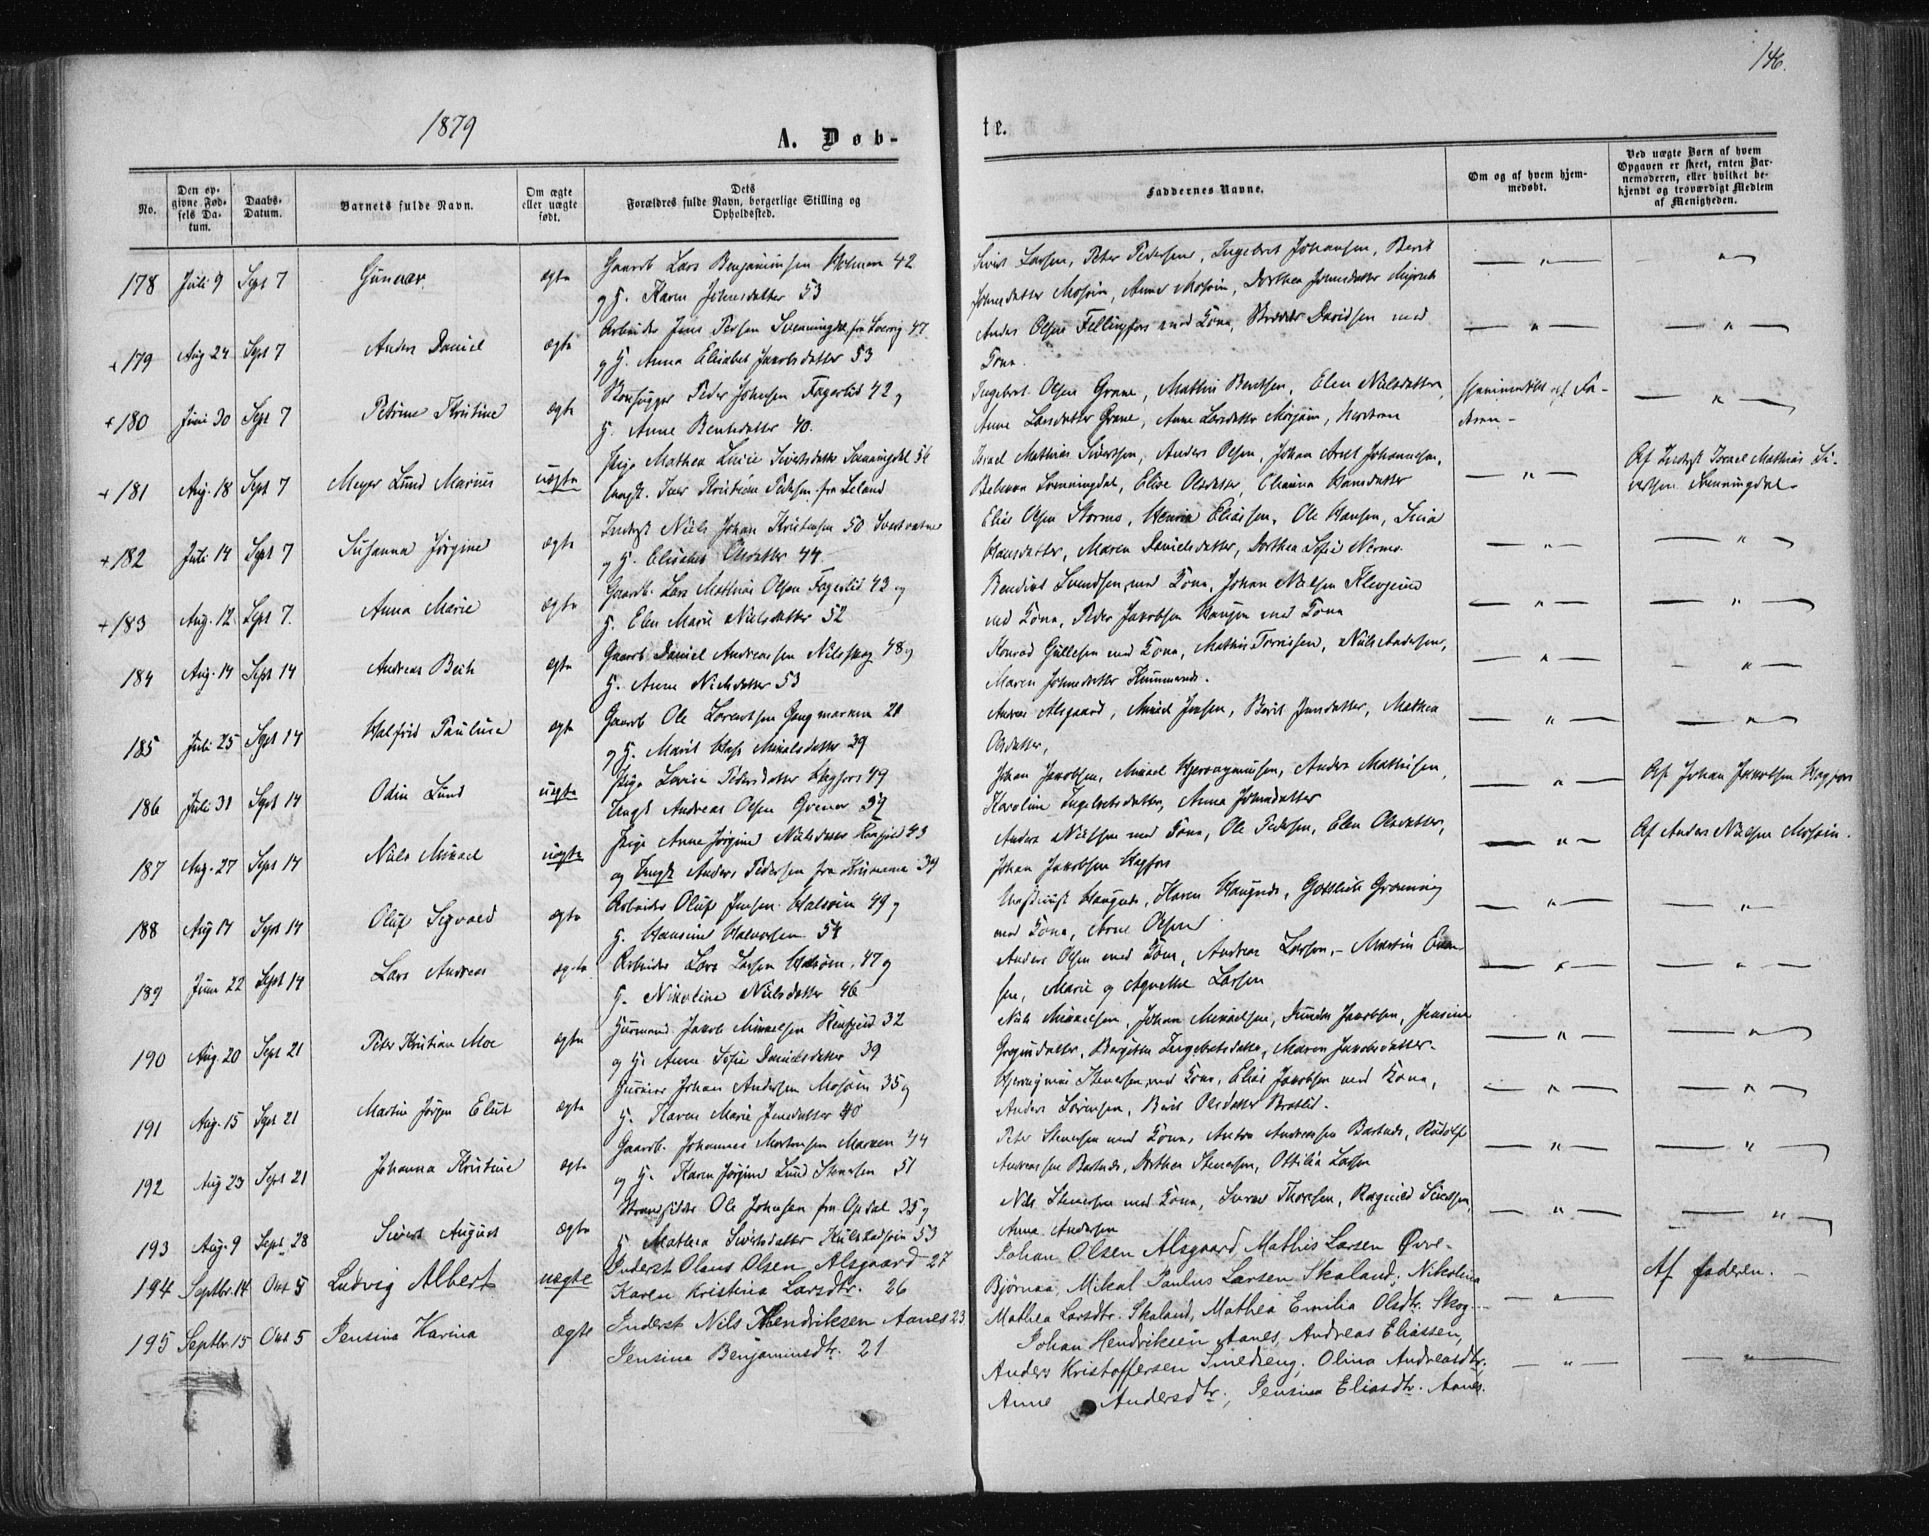 146.
1879
A. Døb-
te.
No.
Den op-
givne Fød-
sels Da-
tum.
Daabs-
Datum.
Barnets fulde Navn.
Om ægte
eller uægte
født.
Dets
Forældres fulde Navn, borgerlige Stilling og
Opholdssted.
Faddernes Navne.
Om og af hvem hjem-
medøbt.
Ved uægte Børn af hvem
Opgaven er skeet, enten Bar-
nemoderen, eller hvilket be-
kjendt og troværdigt Medlem
af Menigheden.
178 Juli 9 Sept 7 Gunvar ægte Gaardb Lars Benjaminsen Holmen 42
og H. Karen Johnsdatter 53
Sivert Larsen, Peter Pedersen, Ingebret Johansen, Berit
Johnsdatter Mosjøin, Anne Mosjøin, Dorthea Johnsdatter
+179 Aug 24 Sept 7 Anders Daniel ægte Arbeider Jens Persen Svenningdal, fra Sverrig 47
og H. Anna Elisabet Jakobsdatter 53
Anders Olsen Fellingfors med Kona, Davidsen med
Kona.
+180 Juni 30 Sept 7 Petrine Kristine ægte Peder Johnsen Fagerlid 42 og
H. Anne Bentsdatter 40.
Ingebret Olsen Grane, Mathis Bentsen, Elen Nielsdatter,
Anne Larsdatter Grane, Anne Larsdatter Mosjøin,
hjemmedøbt af Fa-
deren -
+181 Aug. 18 Sept 7 Meyer Lund Marius uægte Pige Mathea Lucie Sivertsdatter Svenningdal 56
Ungk. Iver Kristian Pedersen fra Leland
Israel Mathias Sivertsen, Anders Olsen, Johan Arnt Johannesen,
Rebekka Svenningdal, Elise Olsdatter, Hansdatter
Af Inderst Israel Mathias Si-
vertsen Svenningdal
+182 Juli 14 Sept 7 Susanna Jørgine ægte Inderst Niels Johan Kristensen 50 Svartvatne
og H. Elisabet Olsdatter 44
Elias Olsen Stormo, Henrik Eliassen, Ole Hansen,
Hansdatter, Maren Danielsdatter, Dorthea Sofie Nermo.
+183 Aug. 12 Sept 7. Anna Marie ægte Gaardb. Lars Mathias Olsen Fagerlid 43 og
H. Elen Marie Nielsdatter 52
Bendikt Svendsen med Kona, Johan Nielsen
med Kona, Peder Jakobsen Haugen med Kona
184 Aug. 14 Sept 14 Andreas Berth ægte Gaardb Daniel Andreassen Nilsskog 48 og
H. Anne Nielsdatter 53
Konrad Gullesen med Kona, Mathis Tørrissen, Niels Andersen,
Maren Johnsdatter
185 Juli 25 Sept 14 Halfrid Pauline ægte Gaardb Ole Lorentsen 28
og H. Marit Mikalsdatter 39
Andreas Alsgaard, Jensen, Berit Jensdatter, Mathea
Olsdatter,
186 Juli 31 Sept 14 Odin Lund uægte Pige Lovise Pedersdatter Hagfors 49
Ungk Andreas Olsen 37
Johan Jakobsen, Mikael Hjeronymusen, Anders Mathisen,
Karoline Ingebretsdatter, Anna Johnsdatter
Af Johan Jakobsen Hagfors
187 Aug. 27 Sept 14 Niels Mikael uægte Pige Anne Jørgine Nielsdatter 43
og Ungk Anders Pedersen fra 34
Anders Nielsen med Kona, Ole Pedersen, Elen Olsdatter,
Johan Jakobsen Hagfors
Af Anders Nielsen Mosjøin.
188 Aug 14 Sept 14 Oluf Sigvald ægte Arbeider Oluf Jensen Halsøin 49 og
H. Hansine Halvorsen 54
Haugnes, Karen Haugnes, Gottlieb Grønning
med Kona, Arne Olsen
189 Juni 22 Sept 14 Lars Andreas ægte Arbeider Lars Larsen Halsøin 47 og
H. Nikoline Nielsdatter 46
Anders Olsen med Kona, Andreas Larsen, - Martin
sen, Marie og Agnethe Larsen
190 Aug. 20 Sept 21 Peter Kristian Moe ægte Huusmand Jakob Mikkelsen Remfjeld 32
og H. Anne Sofie Danielsdatter 39
Niels Mikkelsen, Johan Mikkelsen, Jakobsen, Jensine
Birgitte Ingebretsdatter, Maren Jakobsdatter
191 Aug. 15 Sept 21 Martin Jørgen Elut ægte Johan Andersen Mosjøin 35 og
H. Karen Marie Jensdatter 40
Hjeronymus Stenersen med Kona, Elias Jakobsen med Kona,
Anders Sørensen, Berit Olsdatter Bratlid.
192 Aug 23 Sept 21 Johanna Kristine ægte Gaardb. Johannes Mortensen Marken 44
og H. Karen Jørgine Lund Stenersen 51
Peter Stenersen med Kona, Andrea Andreassen Baatnes, Rudolf
Andreassen Baatnes, Dorthea Stenersen, Ottilia Larsen
193 Aug. 9 Sept. 28 Sivert August ægte Strandsidder Ole Johnsen fra Opdal 35 og
H. Mathea Sivertsdatter Kulstadsjøin 53
Nils Stenersen med Kona, Thoresen, Ragnild
Anna Andersen
194 Septbr. 14 Okt 5 Ludvig Albert uægte Inderst Olaus Olsen Alsgaard 27
Karen Kristina Larsdtr. 26
Johan Olsen Alsgaard, Mathis Larsen Øvre-
Bjørnaa, Mikal Paulus Larsen Skaland, Nikolina
Mathea Larsdtr. Skaland, Mathea Emilia Olsdtr. Skog
Af faderen.
195 Septbr. 15 Okt 5 Jensina Karina ægte Inderst Nils Hendriksen Aanes 23
Jensina Benjaminsdtr. 21
Johan Hendriksen Aanes, Andreas Eliassen,
Anders Kristoffersen Smedseng, Olina Andreasdtr.
Anne Andersdtr., Jensina Eliasdtr. Aanes.